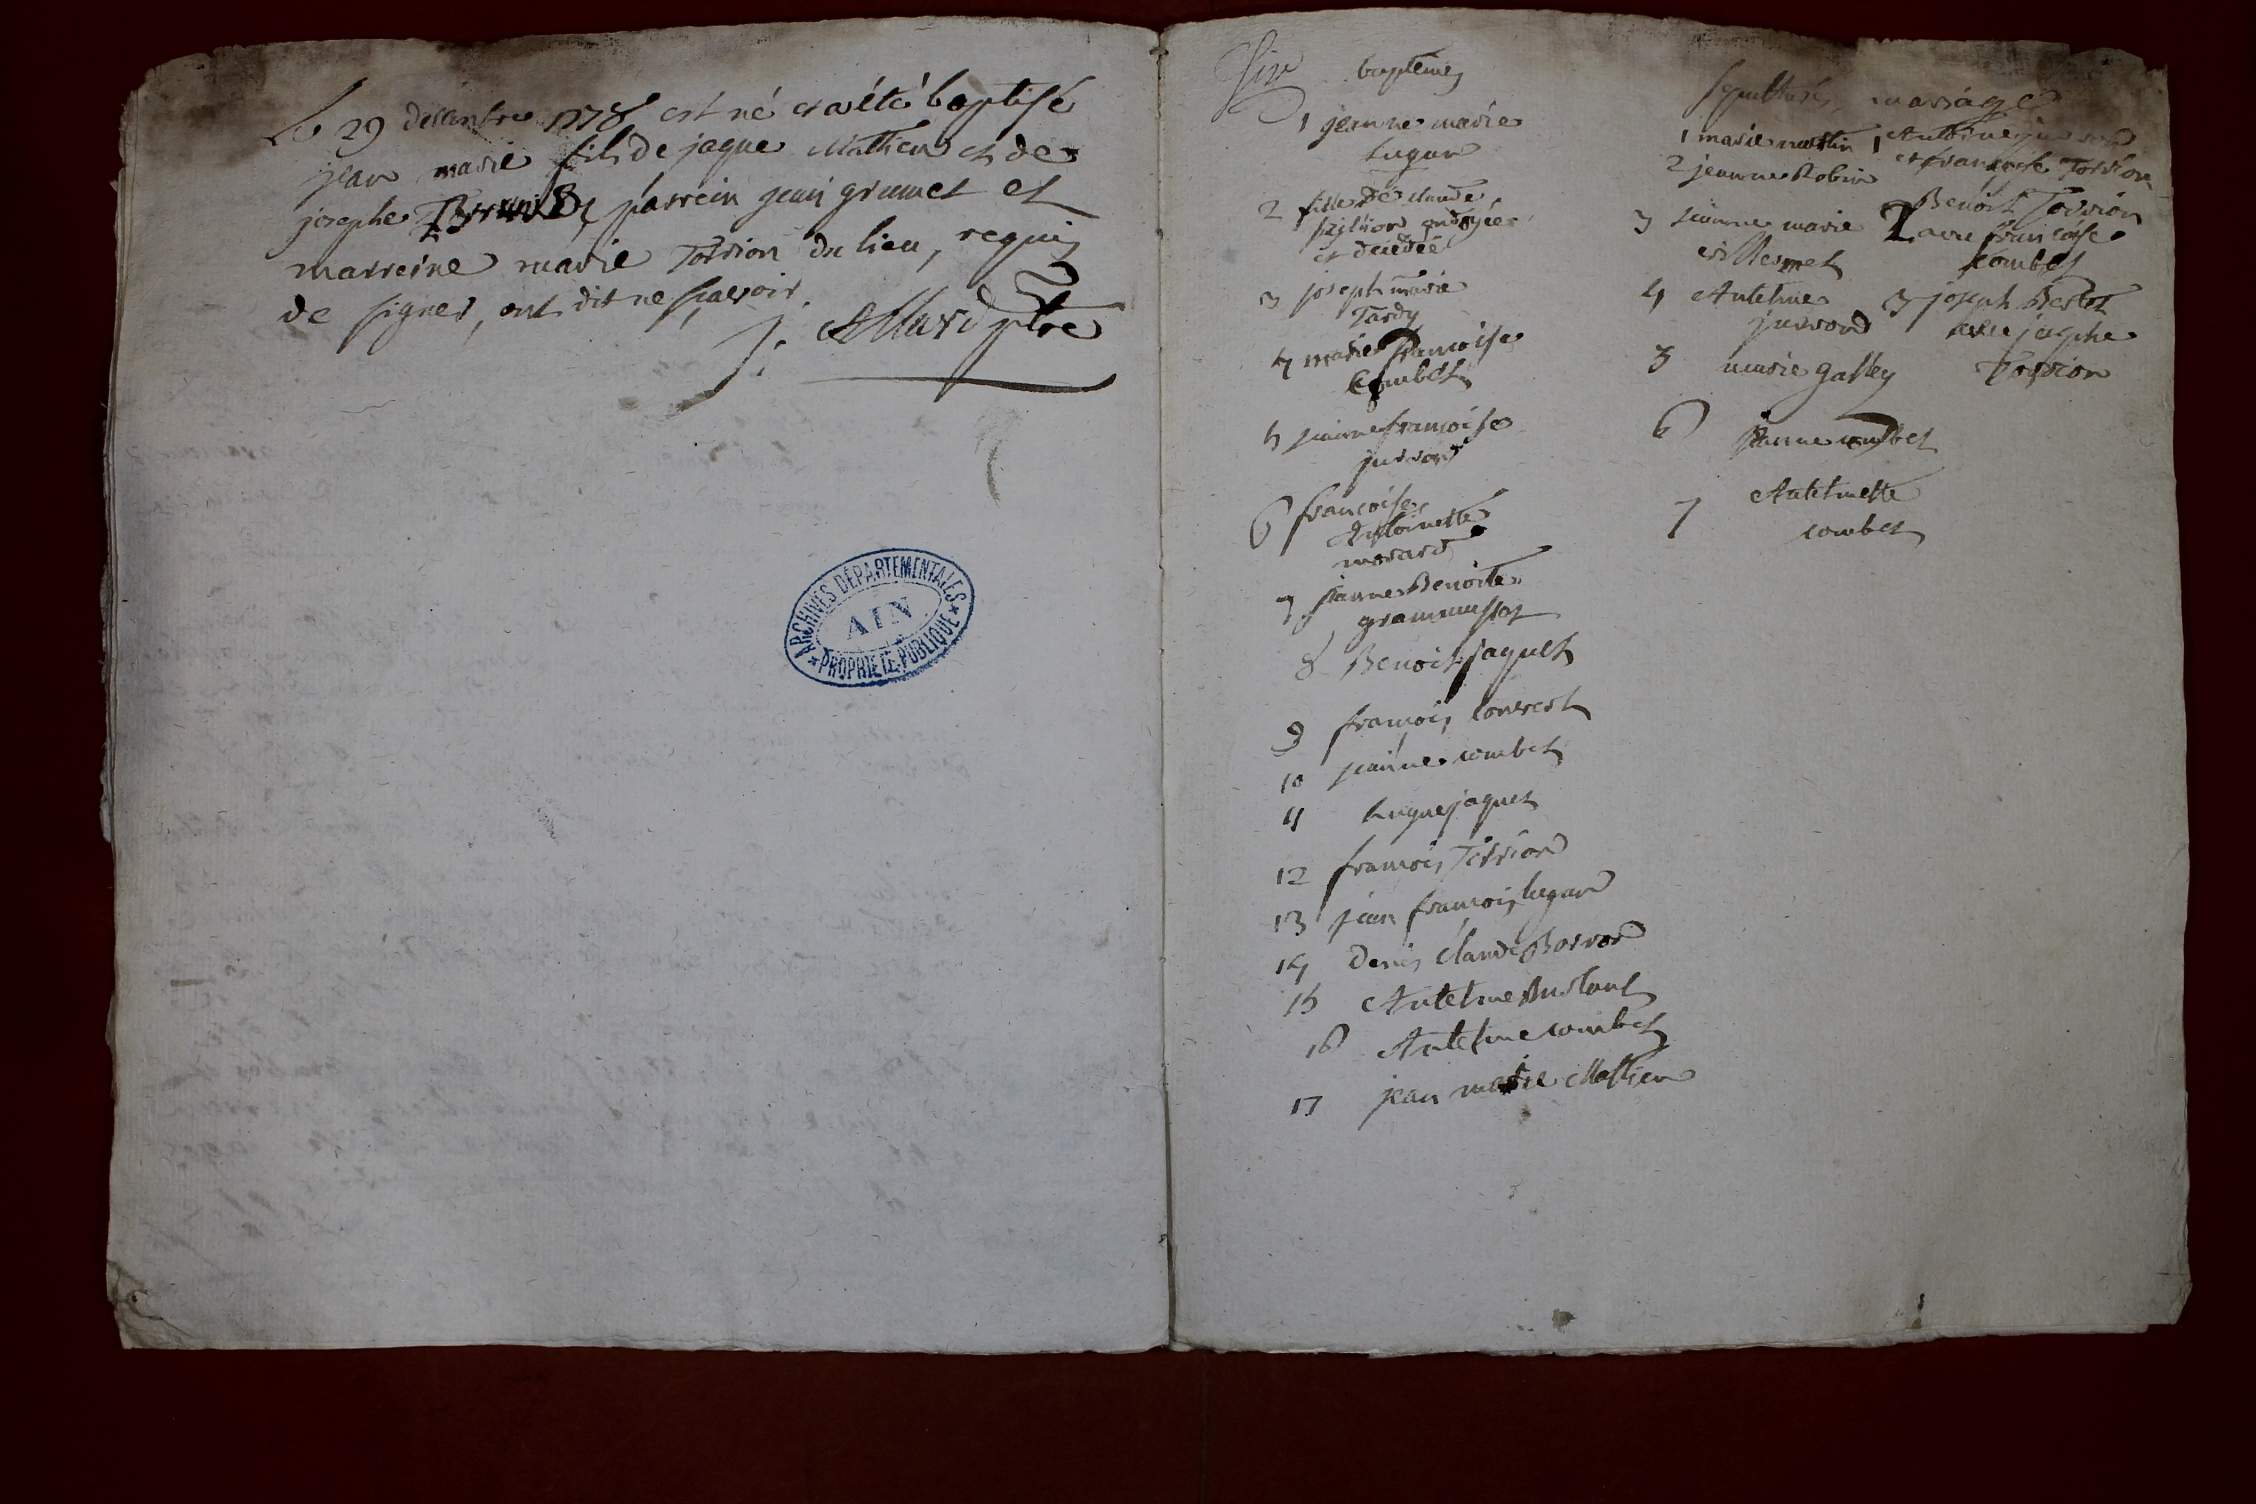 Le 29 desambre 1778 est né et a été baptisé
jean marie fils de jaque Mathieu et de
josephe parrein jean grumet et
marreine marie Torrion du lieu, requis
de signer, ont dit ne sçavoir.
j. Allard ptre
ARCHIVES DÉPARTEMENTALES
AIN
PROPRIÉTÉ PUBLIQUE
baptemes
1 jeanne marie
Lugan
2 fille de claude
ondoyée
et decedée
3 joseph marie
Tardy
4 marie francoise
Combet
5 jeanne francoise
juvrond
6 francoise
Antoinette
morard
7 jeanne Benoite
8 Benoit jaquet
9 francois Convert
10 jeanne combet
11 hugue jaquet
12 francois Torrion
13 jean francois lugan
14 Denis Claude Borron
15 Antelme
16 Antelme combet
17 jean marie Mathieu
sepultures
1 marie martin
2 jeanne Robin
3 jeanne marie
4 Antelme
juvrond
5 marie galley
6 jeanne combet
7 Antelmette
combet
mariages
1 Antoine juvrond
et françoise Torrion
2 Benoit Torrion
avec francoise
combet
3 joseph Bertet
avec josephe
Torrion